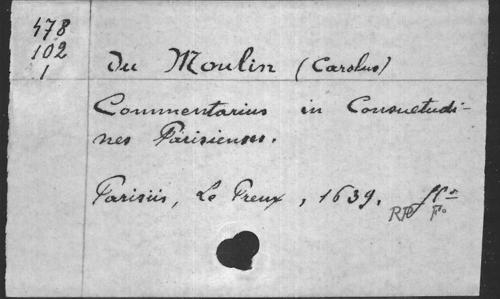 478
102
1
Du Moulin (Carolus)
Commentarius in Consuetudi-
nes Parisienses.
Parisiis, Le Preux, 1639.
Fo